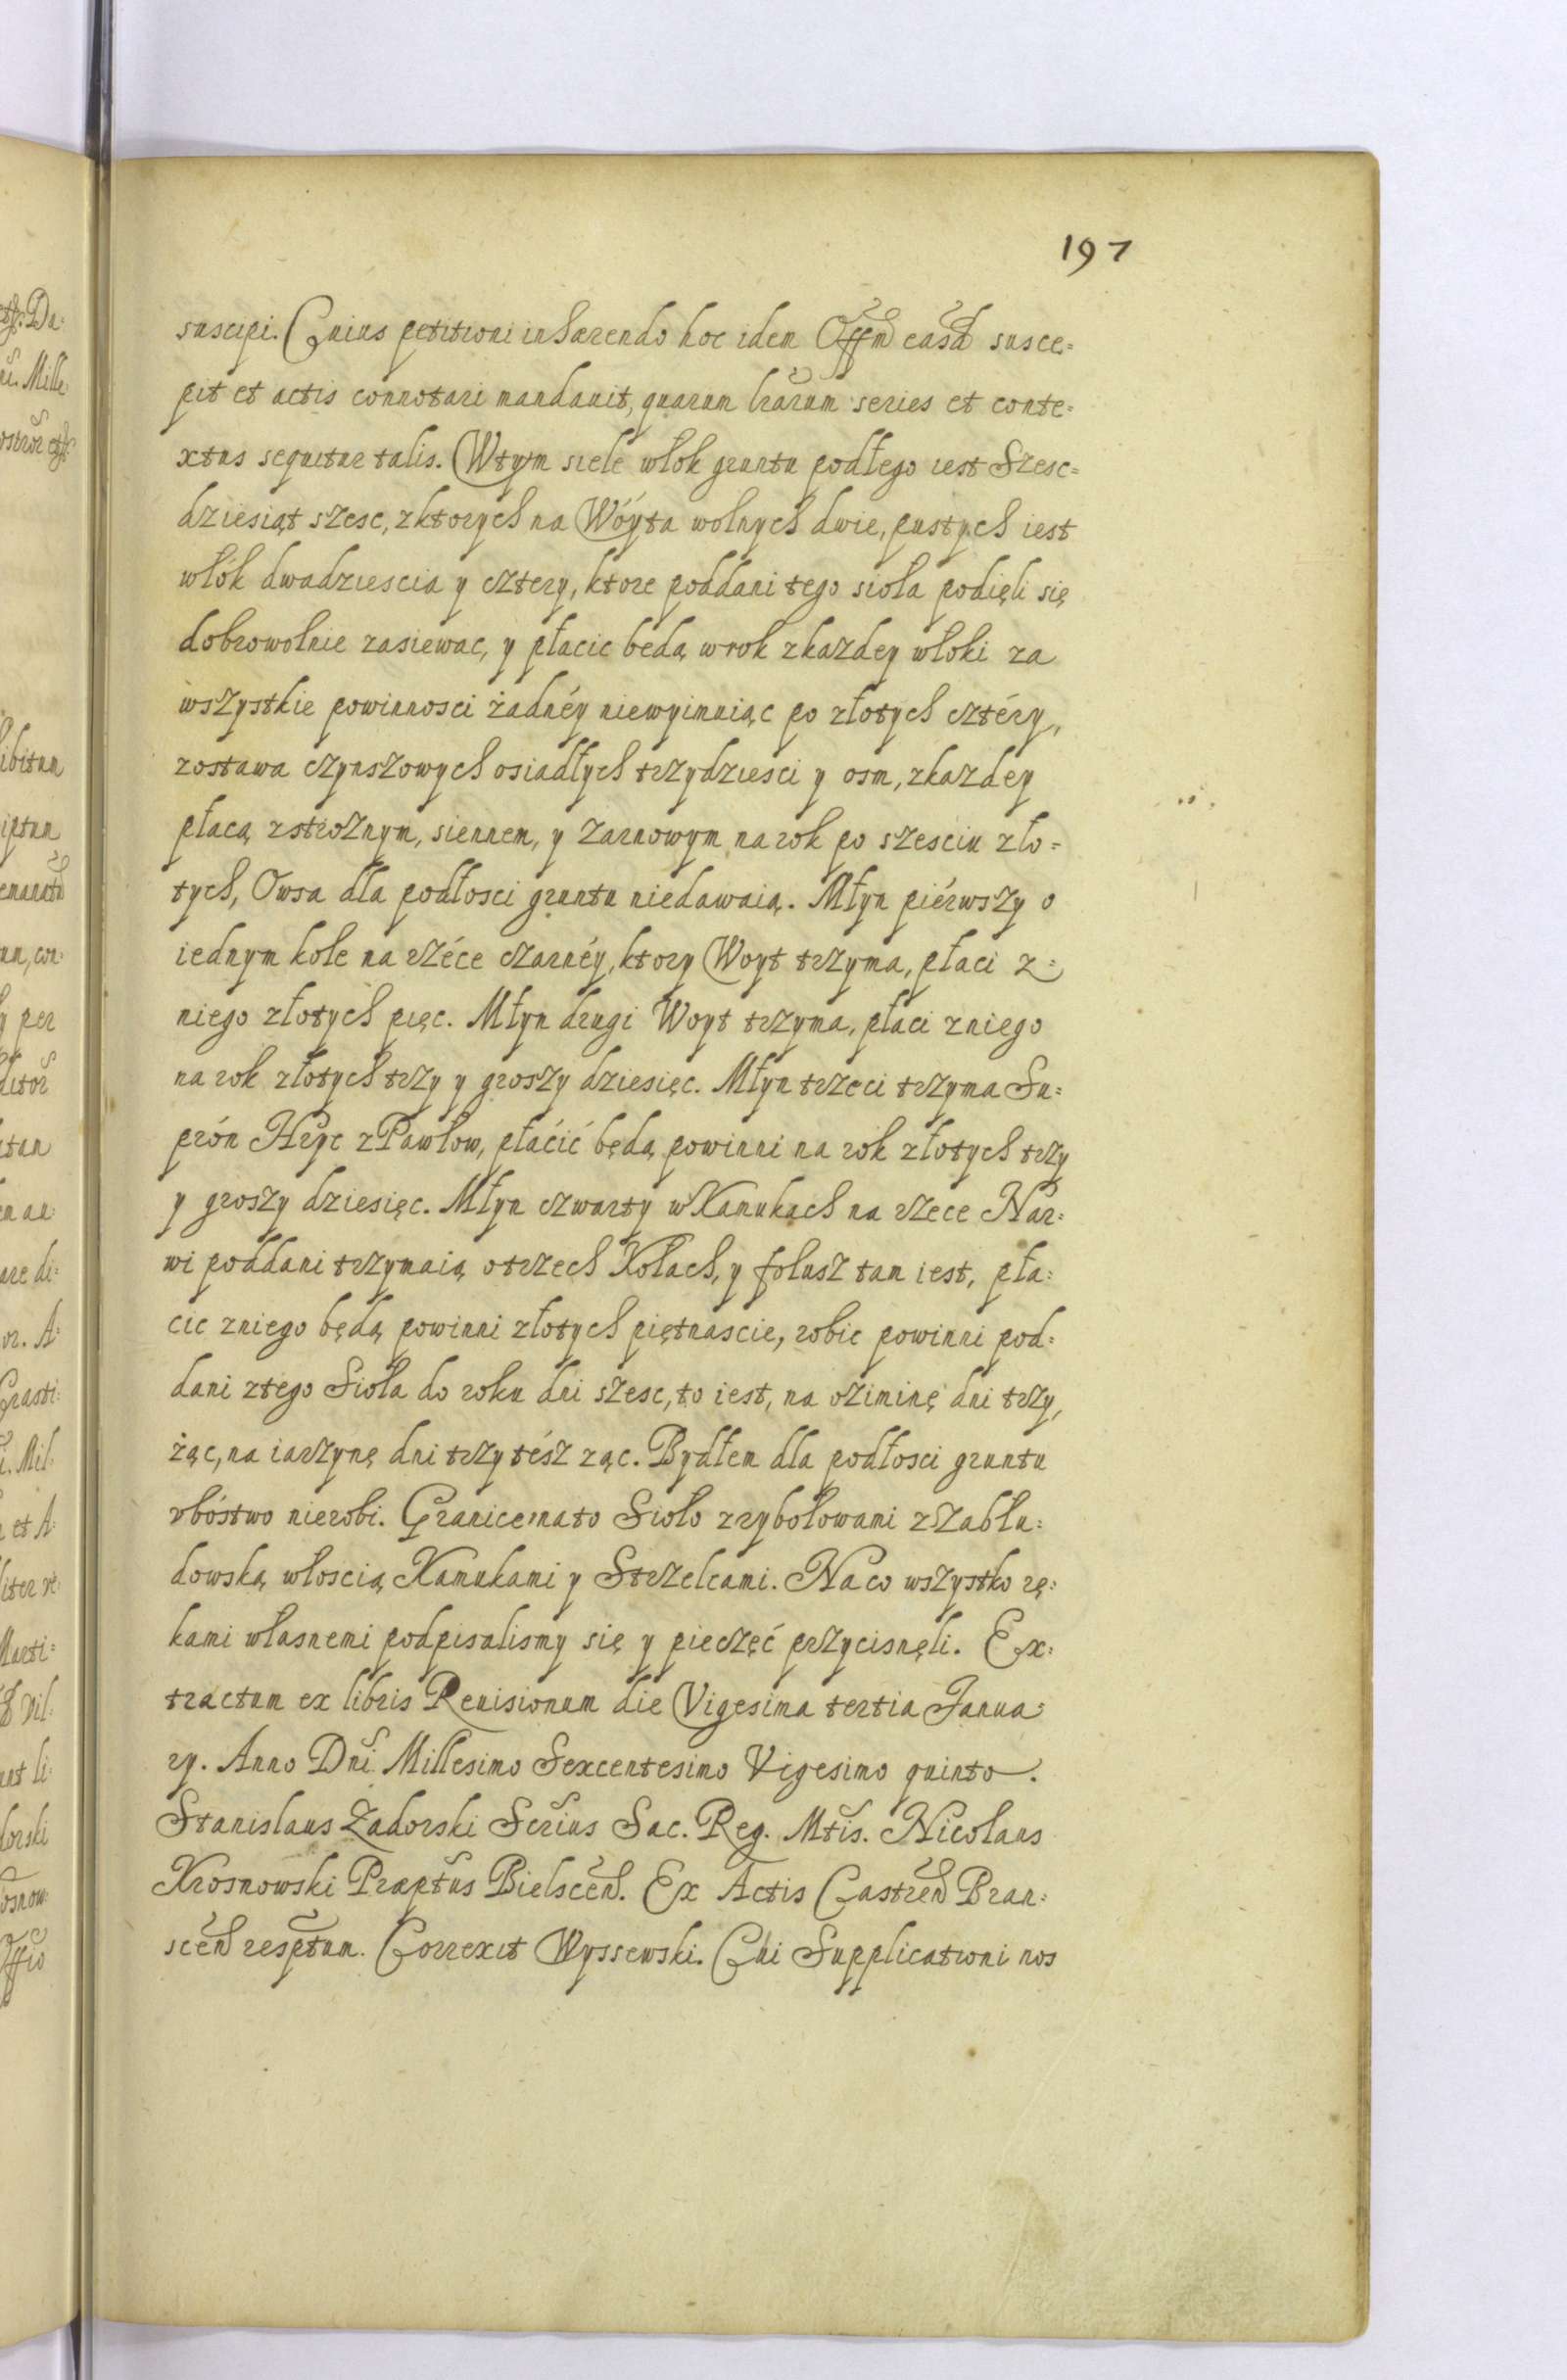 197
suscipi. Cuius petitioni inhærendo hoc idem Offm easd susce=
pit et actis connotari mandauit, quarum lrarum series et conte=
xtus sequitur talis. Wtym siele włok gruntu podłego iest Szesc=
dziesiąt szesc, zktorych na Wóyta wolnych dwie, pustych iest
włók dwadziescia y cztery, ktore poddani tego sioła podięli się
dobrowolnie zasiewac, y płacic beda wrok zkazdey włoki za
wszystkie powinnosci żadnéy niewyimuiąc po złotych cztéry,
zostawa czynszowych osiadłych trzydziesci y osm, zkazdey
płacą zstroznym, siennem, y zarnowym na rok po szesciu zło=
tych, Owsa dla podłosci gruntu niedawaią. Młyn piérwszy o
iednym kole na rzéce czarnéy, ktory Woyt trzyma, płaci z=
niego złotych pięc. Młyn drugi Woyt trzyma, płaci zniego
na rok złotych trzy y groszy dziesięc. Młyn trzeci trzyma Su=
prón Hryc zPawłow, płaćić będą powinni na rok złotych trzy
y groszy dziesięc. Młyn czwarty wKanukach na rzece Nar=
wi poddani trzymaią otrzech Kołach, y folusz tam iest, pła=
cic zniego będą powinni złotych piętnascie, robic powinni pod=
dani ztego Sioła do roku dni szesc, to iest, na oziminę dni trzy,
żąc, na iarzynę dni trzy tész ząc. Bydłem dla podłosci gruntu
vbóstwo nierobi. Granicemato Sioło zrybołowami zZabłu=
dowską włoscią Kamukami y Strzelcami. Naco wszystko rę=
kami własnemi podpisalismy się y pieczęć przycisnęli. Ex=
tractum ex libris Reuisionum die Vigesima tertia Janua=
ry. Anno Dni Millesimo Sexcentesimo Vigesimo quinto.
Stanislaus Zadorski Scrius Sac. Reg. Mtis. Nicolaus
Krosnowski Præptus Bielscen. Ex Actis Castren Bran=
scen resptum. Correxit Wyssewski. Cui Supplicationi nos